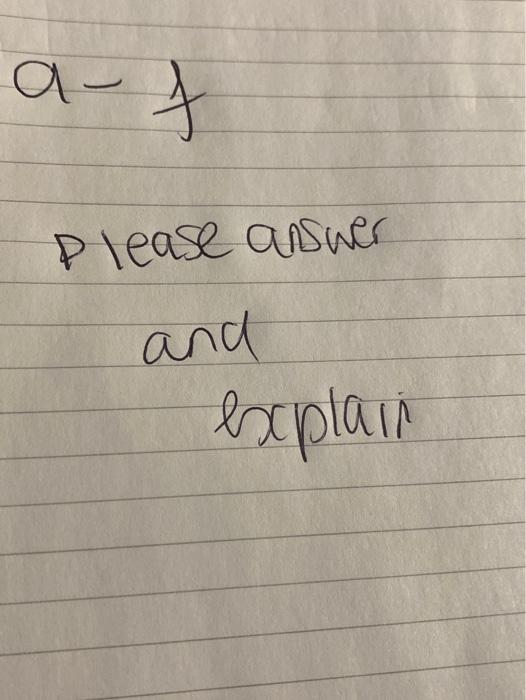 a - f
Please answer
and
explain